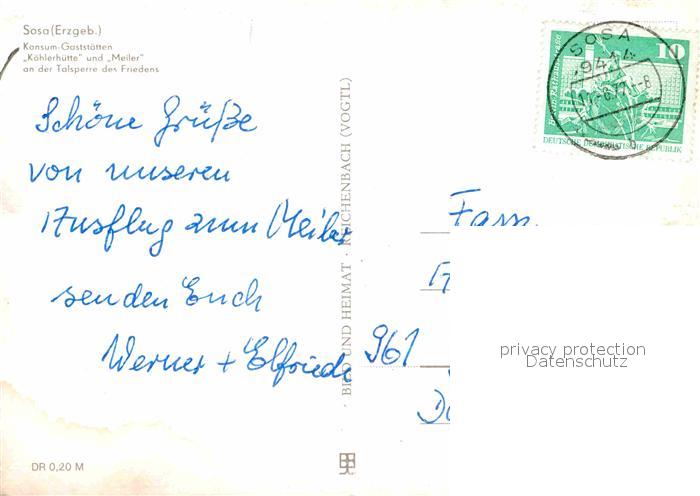 Sosa (Erzgeb.)
Konsum-Gaststätten
„Köhlerhütte" und „Meiler"
an der Talsperre des Friedens
SOSA
10
DEUTSCHE DEMOKRATISCHE REPUBLIK
Schöne Grüße
von unseren
Ausflug zum Meiler
senden Euch
Werner + Elfriede
BILD UND HEIMAT · REICHENBACH (VOGTL)
Fam
961
privacy protection
Datenschutz
DR 0,20 M